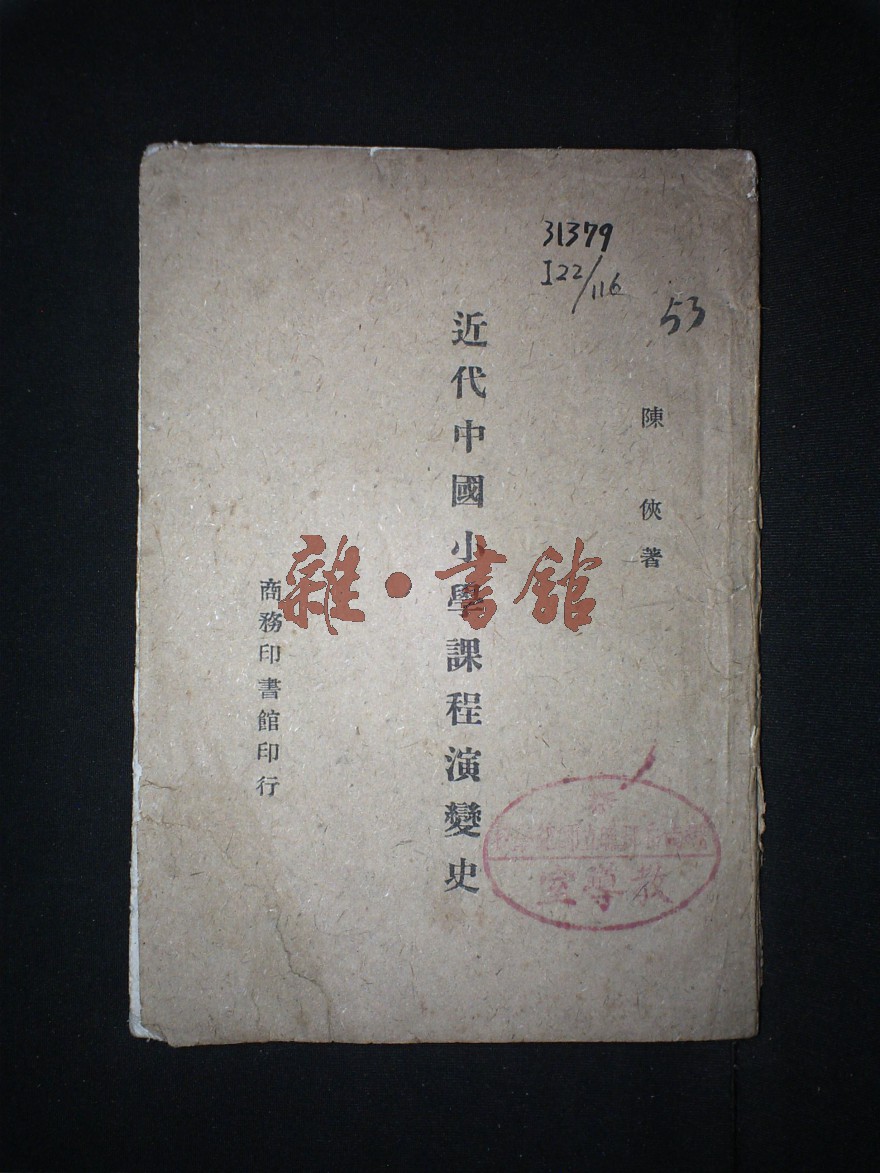 31379
I22/116
53
陳俠著
近代中國小學課程演變史
商務印書館印行
雜·書館
教導室